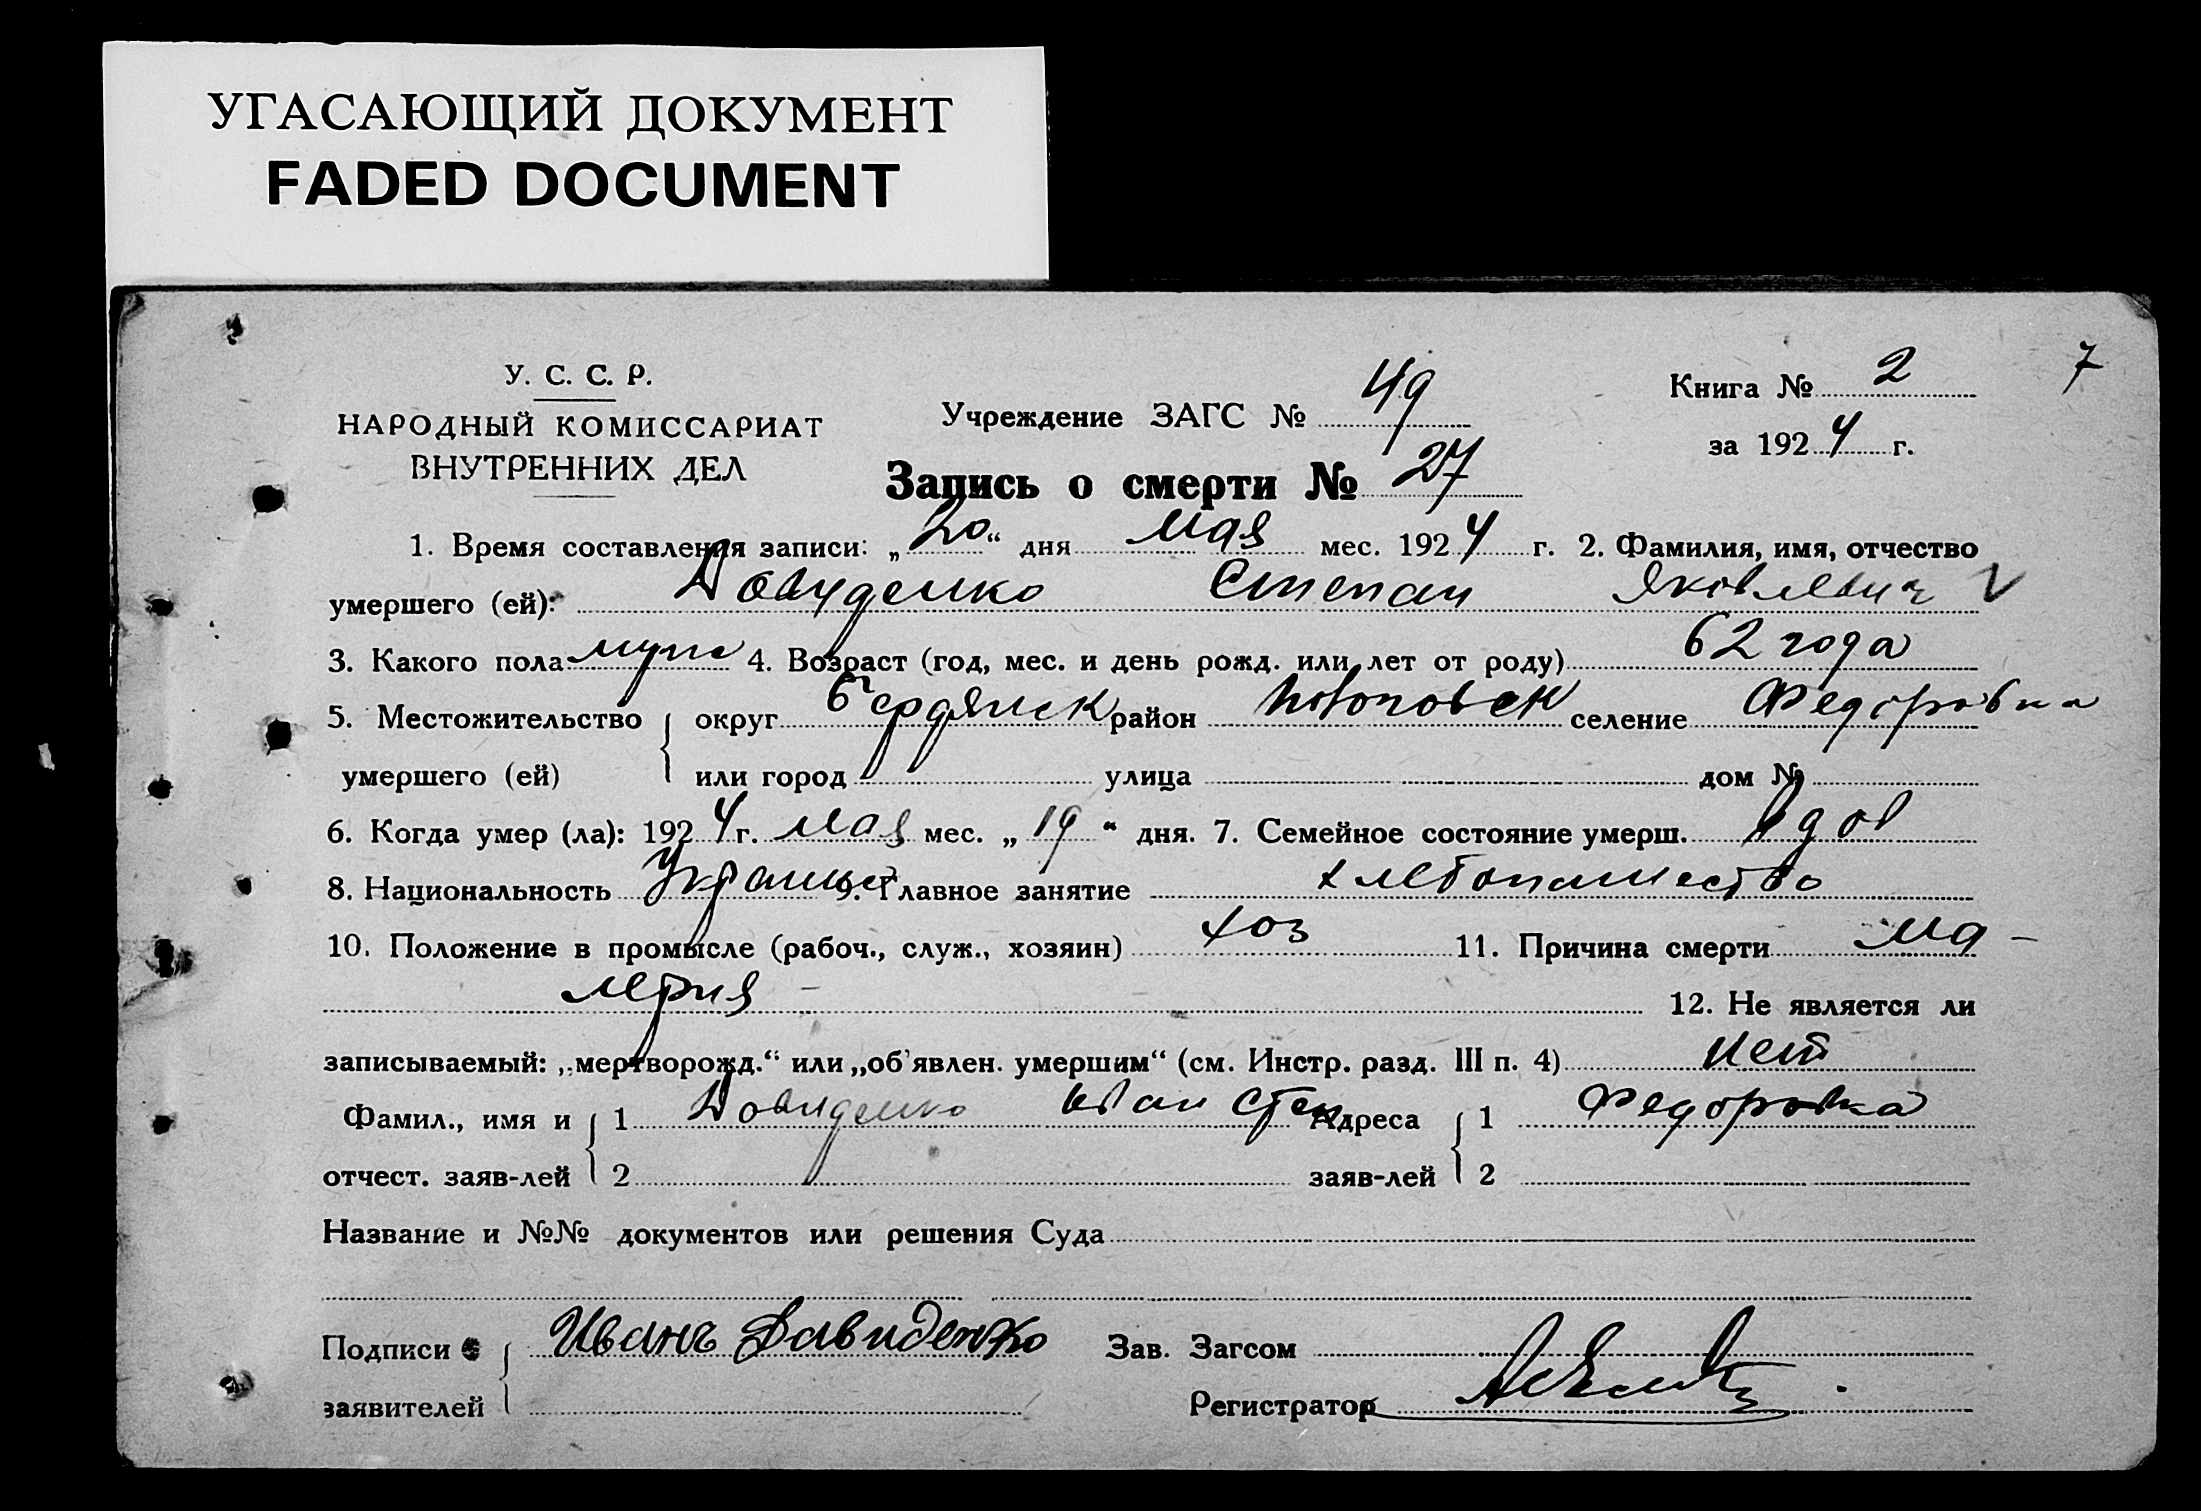 УГАСАЮЩИЙ ДОКУМЕНТ
FADED DOCUMENT
7
У. С. С. Р.
НАРОДНЫЙ КОМИССАРИАТ
ВНУТРЕННИХ ДЕЛ
Учреждение ЗАГС № 49
Книга № 2
за 1924 г.
Запись о смерти № 27
1. Время составления записи: „20“ дня мая мес. 1924 г. 2. Фамилия, имя, отчество
умершего (ей): Довиденко Степан Яковлевич
3. Какого пола муж 4. Возраст (год, мес. и день рожд. или лет от роду) 62 года
5. Местожительство { округ Бердянск район селение Федоровка
умершего (ей) или город улица дом №
6. Когда умер (ла): 1924 г. мая мес. „19“ дня. 7. Семейное состояние умерш. вдов
8. Национальность Украинец 9. Главное занятие хлебопашество
10. Положение в промысле (рабоч., служ., хозяин) хоз 11. Причина смерти ма-
лярия 12. Не является ли
записываемый: „мертворожд.“ или „об'явлен. умершим“ (см. Инстр. разд. III п. 4) нет
Фамил., имя и { 1 Довиденко Иван Степ Адреса { 1 Федоровка
отчест. заяв-лей 2 заяв-лей 2
Название и №№ документов или решения Суда
Подписи { Иванъ Давиденко Зав. Загсом
заявителей Регистратор